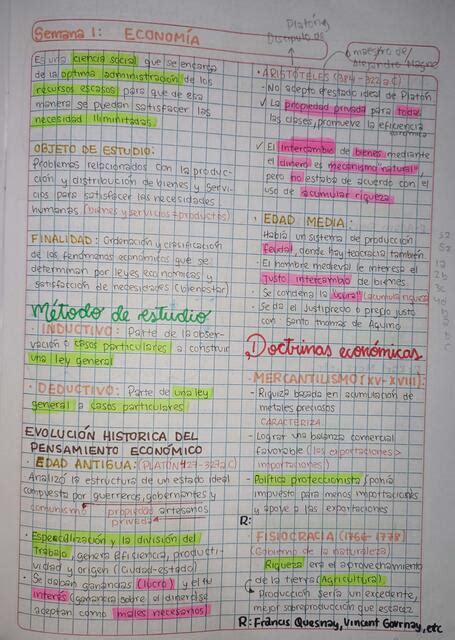 Semana 1: ECONOMÍA
Es una ciencia social que se encarga
de la optima administración de los
recursos escasos para que de esa
manera se puedan satisfacer las
necesidad iliminitadas.
OBJETO DE ESTUDIO:
Problemas relacionados con la produc-
ción y distribución de bienes y servi-
cios para satisfacer las necesidades
humanas (bienes y servicios = productos)
FINALIDAD: Ordenación y clasificación
de los fenómenos económicos que se
determinan por leyes económicas y
satisfacción de necesidades (bienestar)
Método de estudio
· INDUCTIVO: Parte de la obser-
vación o casos particulares a construir
una ley general
· DEDUCTIVO: Parte de una ley
general a casos particulares
EVOLUCIÓN HISTORICA DEL
PENSAMIENTO ECONÓMICO
· EDAD ANTIGUA: (PLATÓN 427-347a.C)
Analizó la estructura de un estado ideal
compuesta por guerreros, gobernantes y
comunismo propiedad artesanos
privada
· Especialización y la división del
Trabajo, genera eficiencia, producti-
vidad y origen (Ciudad-estado)
· Se daban ganancias (lucro) y el
interés (ganancia sobre el dinero) se
aceptan como males necesarios)
Platón
Discipulo de
maestro de
Alejandro Magno
· ARISTÓTELES (384-322 a.C)
- No acepto el estado ideal de Platón
✓ La propiedad privada para todas
las clases, promueve la eficiencia
económica
✓ El intercambio de bienes mediante
el dinero es mecanismo natural",
pero no estaba de acuerdo con el
uso de acumular riqueza
· EDAD MEDIA:
Había un sistema de producción
feudal, donde hay teocracia también
- El hombre medieval le interesa el
justo intercambio de bienes
- Se condena la usura" (acumula riqueza
- Se da el justiprecio o precio justo
con Santo Thomas de Aquino
Doctrinas económicas
- MERCANTILISMO (XV-XVIII):
- Riquiza basada en acumulación de
metales preciosos
CARACTERIZA
- Lograr una balanza comercial
favorable (las exportaciones >
importaciones)
- Política proteccionista (ponía
impuesto para menos importaciones
y apoye a las exportaciones
R:
FISIOCRACIA (1756-1778)
(Gobierno de la naturaleza)
Riqueza era el aprovechamiento
de la tierra (Agricultura).
- Producción sería un excedente,
mejor sobreproducción que escasez
R: Francis Quesnay, Vincent Gournay, etc